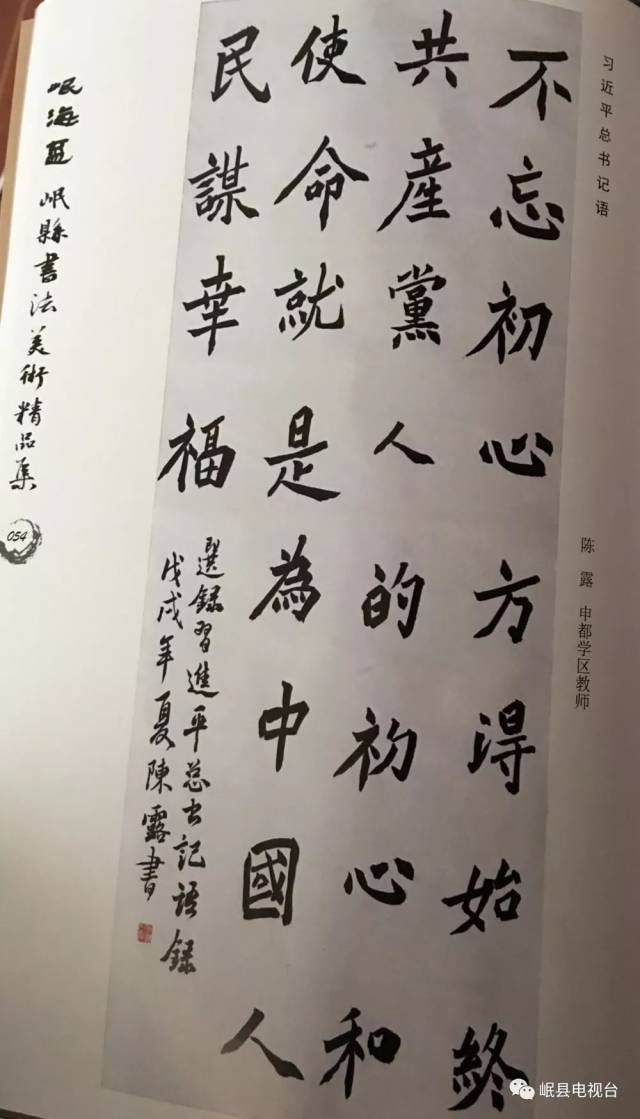 习近平总书记语
陈露 申都学区教师
不忘初心方得始終
共産黨人的初心和
使命就是為中國人
民謀幸福
選録習進平总书記語録
戊戌年夏陳露書
岷海蓝 岷縣書法美術精品集
054
岷县电视台